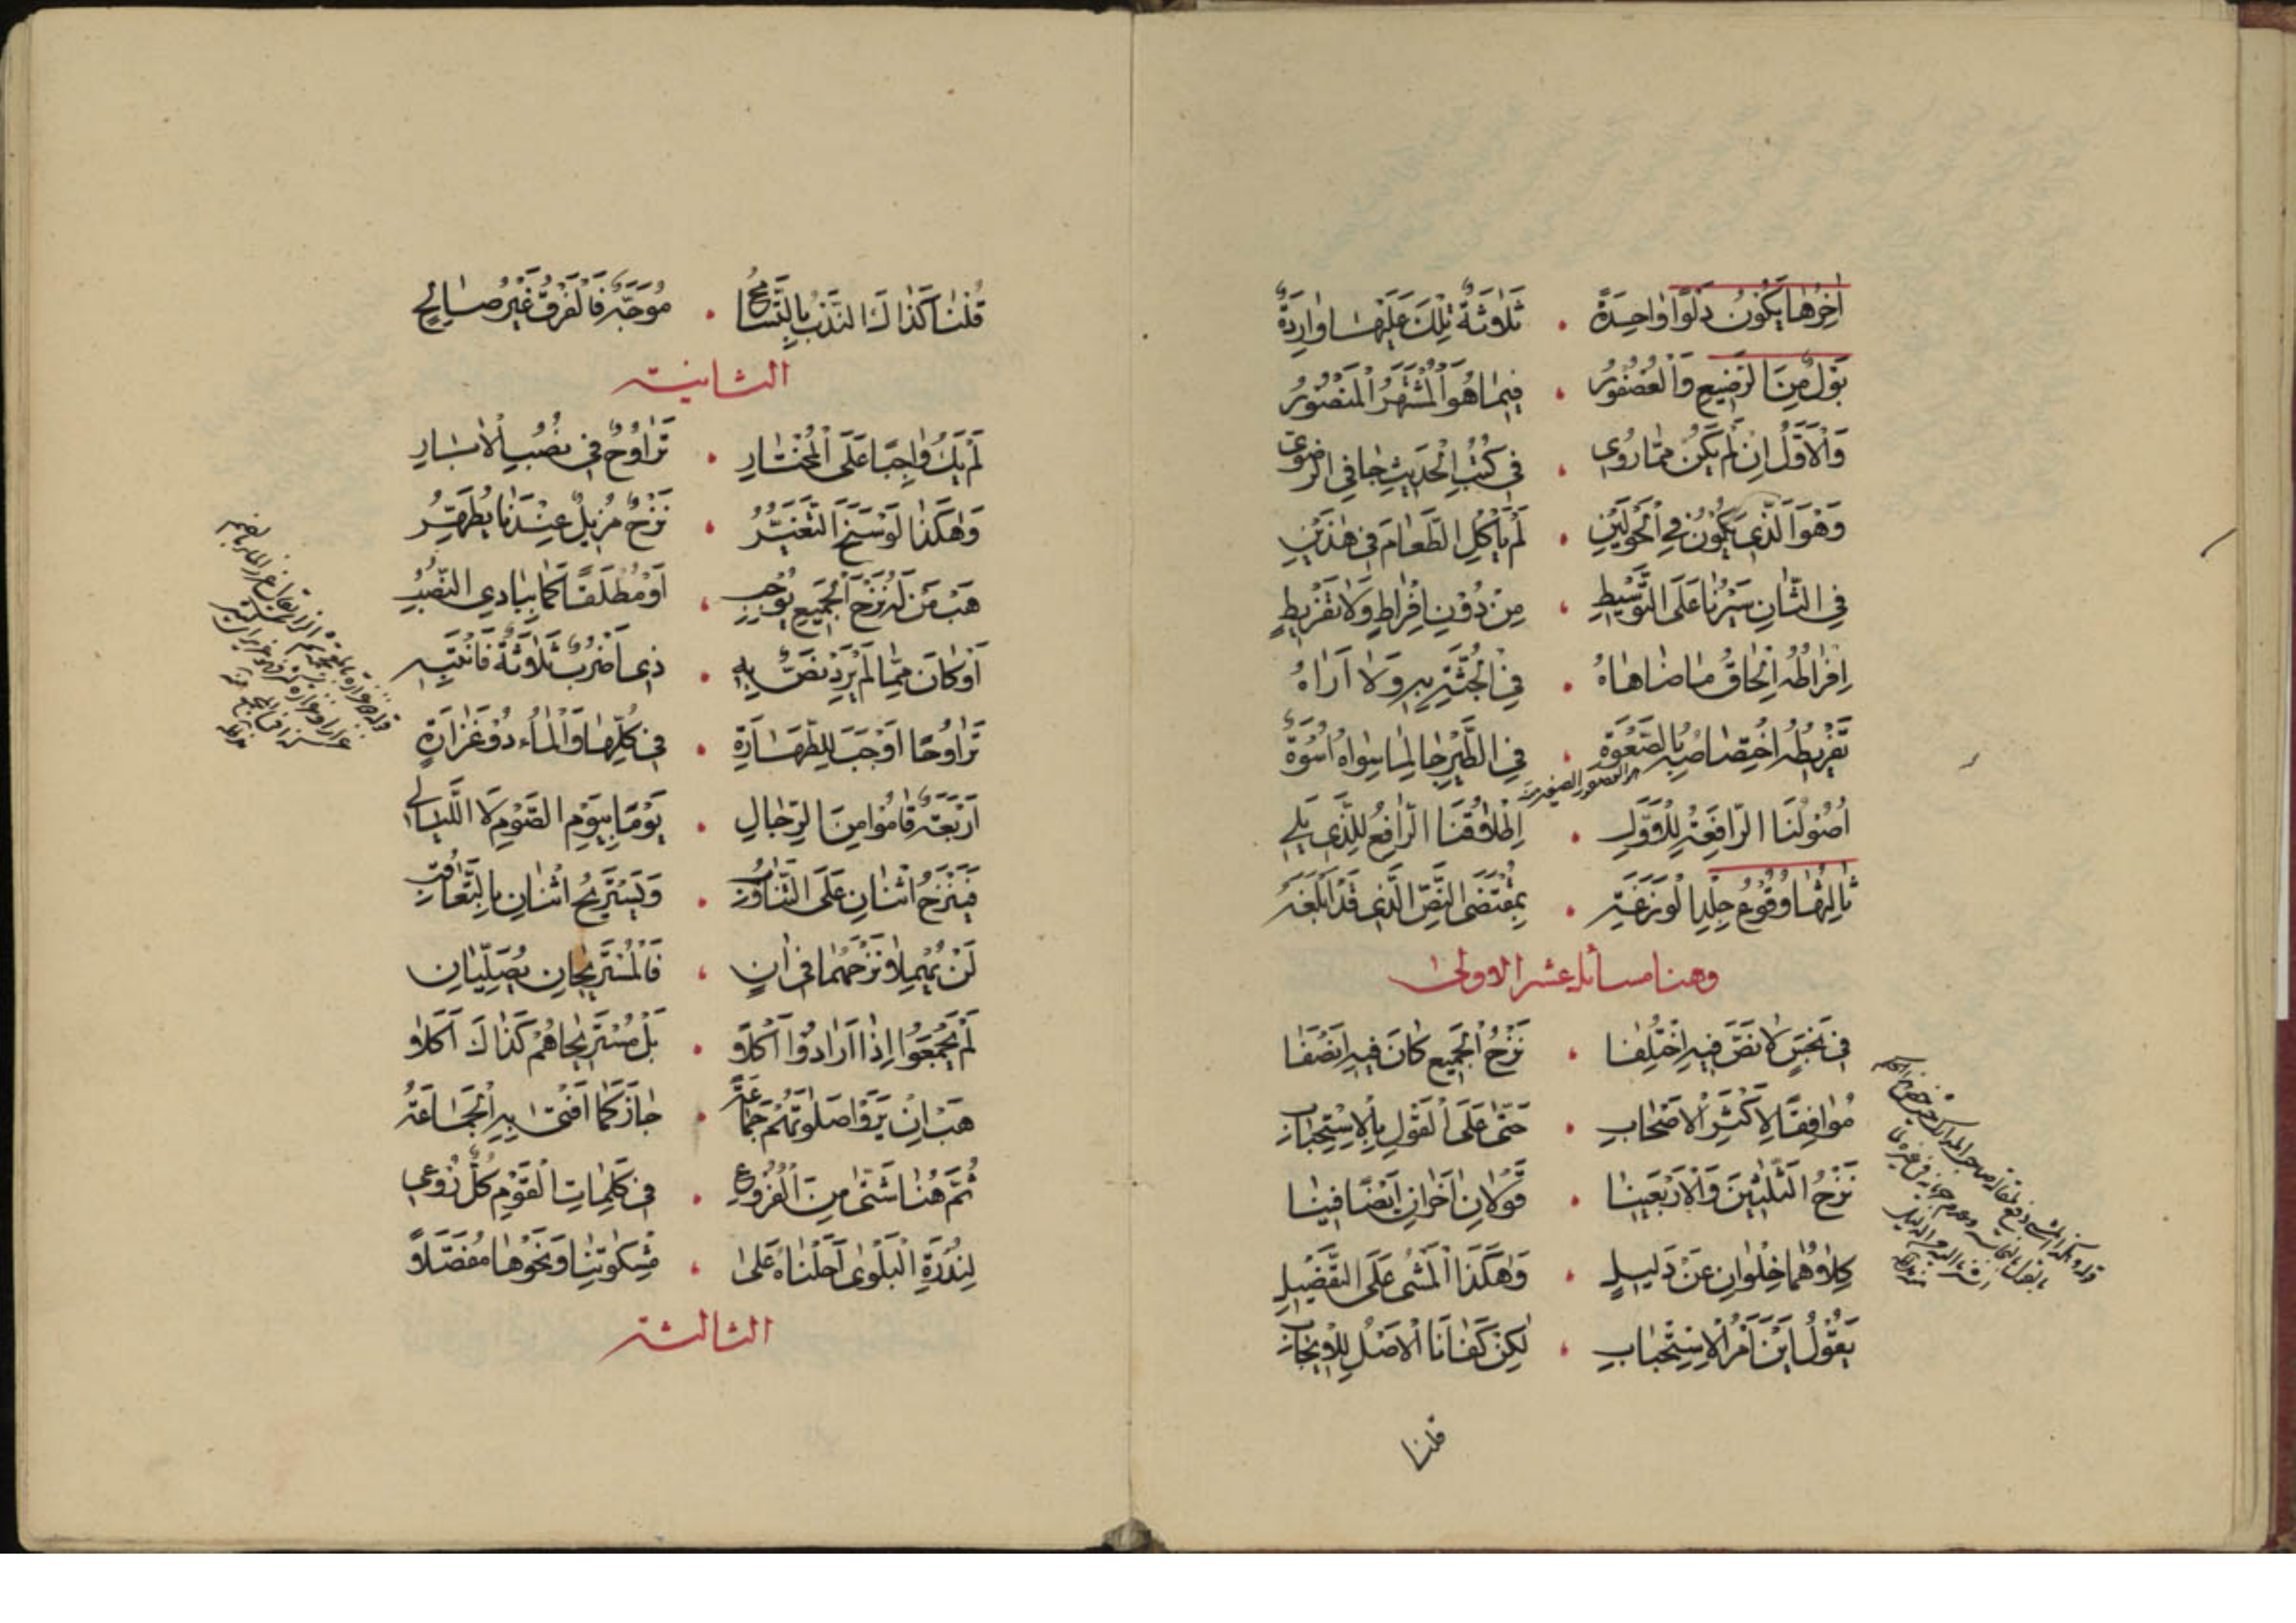 اٰخِرُهٰا يَكُونُ دَلْوًا وٰاحِدَةً . ثَلاٰثَةٌ تِلْكَ عَلَيْهٰا وٰارِدَةٌ
بَوْلٌ مِنَ الرَّضِيعِ وَالْعُصْفُورُ . فِيمٰا هُوَ الْمُشْتَهَرُ الْمَنْصُورُ
وَالْاَوَّلُ اِنْ لَمْ يَكُنْ مِمّٰا رُوِى . فِى كُتُبِ الْحَدِيثِ جٰا فِى الرَّضَوِىِّ
وَهْوَ الَّذِى يَكُونُ فِى الْحَوْلَيْنِ . لَمْ يَأْكُلِ الطَّعٰامَ فِى هٰذَيْنِ
فِى الثّٰانِ سَيْرُنٰا عَلَى التَّوْسِيطِ . مِنْ دُوْنِ اِفْرٰاطٍ وَلٰا تَفْرِيطٍ
اِفْرٰاطُهُ اِلْحٰاقُ مٰا ضٰاهٰاهُ . فِى الْجُثَّةِ بِهِ وَلٰا اَرٰاهُ
تَفْرِيطُهُ اخْتِصٰاصُهُ بِالصَّعْوَةِ . فِى الطَّيْرِ جٰا لِمٰا سِوٰاهُ اُسْوَةٌ
العصفور الصغير
اُصُولُنَا الرّٰافِعَةُ لِلْاَوَّلِ . اِطْلٰاقُنَا الرّٰافِعُ لِلَّذِى يَلِى
ثٰالِثُهٰا وُقُوعُ جِلْدِ الْوَزَغَةِ . بِمُقْتَضَى النَّصِّ الَّذِى قَدْ اَبْلَغَهُ
وهنا مسائل عشر الاولى
فِى نَجَسٍ لٰا نَصَّ فِيهِ اخْتُلِفٰا . نَزْحُ الْجَمِيعِ كٰانَ فِيهِ اَنْصَفٰا
مُوٰافِقًا لِاَكْثَرِ الْاَصْحٰابِ . حَتّٰى عَلَى الْقَوْلِ بِالْاِسْتِحْبٰابِ
نَزْحُ الثَّلٰثِينَ وَالْاَرْبَعِينٰا . قَوْلٰانِ اٰخَرٰانِ اَيْضًا فِينٰا
كِلاٰهُمٰا خِلْوٰانِ عَنْ دَلِيلٍ . وَهٰكَذَا الْمَشْىُ عَلَى التَّفْضِيلِ
يَقُولُ اَيْنَ اَمْرُ الْاِسْتِحْبٰابِ . لٰكِنْ كَفٰانَا الْاَصْلُ لِلْاِيجٰابِ
قلنا
قُلْنٰا كَذٰاكَ النَّدْبُ بِالتَّسٰامُحِ . مُوَجَّهٌ فَالْفَرْقُ غَيْرُ صٰالِحٍ
الثانية
لَمْ يَكُ وٰاجِبًا عَلَى الْمُخْتٰارِ . تَرٰاوُحٌ فِى نُضُبِ الْاٰبٰارِ
وَهٰكَذٰا لَوْ سَنَحَ التَّغَيُّرُ . نَزْحٌ مُزِيلٌ عِنْدَنٰا يُطَهِّرُ
هَبْ مَنْ لَهُ نَزْحَ الْجَمِيعِ يُوجِبُ . اَوْ مُطْلَقًا كَمٰا بِبٰادِى النُّضُبِ
اَوْ كٰانَ مِمّٰا لَمْ يَرِدْ نَصٌّ بِهِ . ذِى اَضْرُبٌ ثَلاٰثَةٌ فَانْتَبِهِ
تَرٰاوُحًا اَوْجَبَ لِلطَّهٰارَةِ . فِى كُلِّهٰا وَالْمٰاءُ ذُوْ غَزٰارَةٍ
اَرْبَعَةٌ قٰامُوا مِنَ الرِّجٰالِ . يَوْمًا بِيَوْمِ الصَّوْمِ لَا اللَّيٰالِى
فَيَنْزَحُ اثْنٰانِ عَلَى التَّنٰاوُبِ . وَيَسْتَرِيحُ اثْنٰانِ بِالتَّعٰاقُبِ
لَنْ يُهْمِلاٰ نَزْحَهُمٰا فِى اٰنٍ . فَالْمُسْتَرِيحٰانِ يُصَلِّيٰانِ
لَمْ يَجْمَعُوا اِذٰا اَرٰادُوا اَكْلاٰ . بَلْ مُسْتَرِيحٰاهُمْ كَذٰاكَ اَكَلاٰ
هَبْ اِنْ يَرَوْا صَلٰوتَهُمْ جَمٰاعَةً . جٰازَ كَمٰا اَفْتٰى بِهِ الْجَمٰاعَةُ
ثُمَّ هُنٰا شَتّٰى مِنَ الْفُرُوعِ . فِى كَلِمٰاتِ الْقَوْمِ كُلٌّ رُوعِى
لِنُدْرَةِ الْبَلْوٰى اَحَلْنٰاهُ عَلٰى . مِشْكٰوتِنٰا وَنَحْوِهٰا مُفَصَّلاً
الثالثة